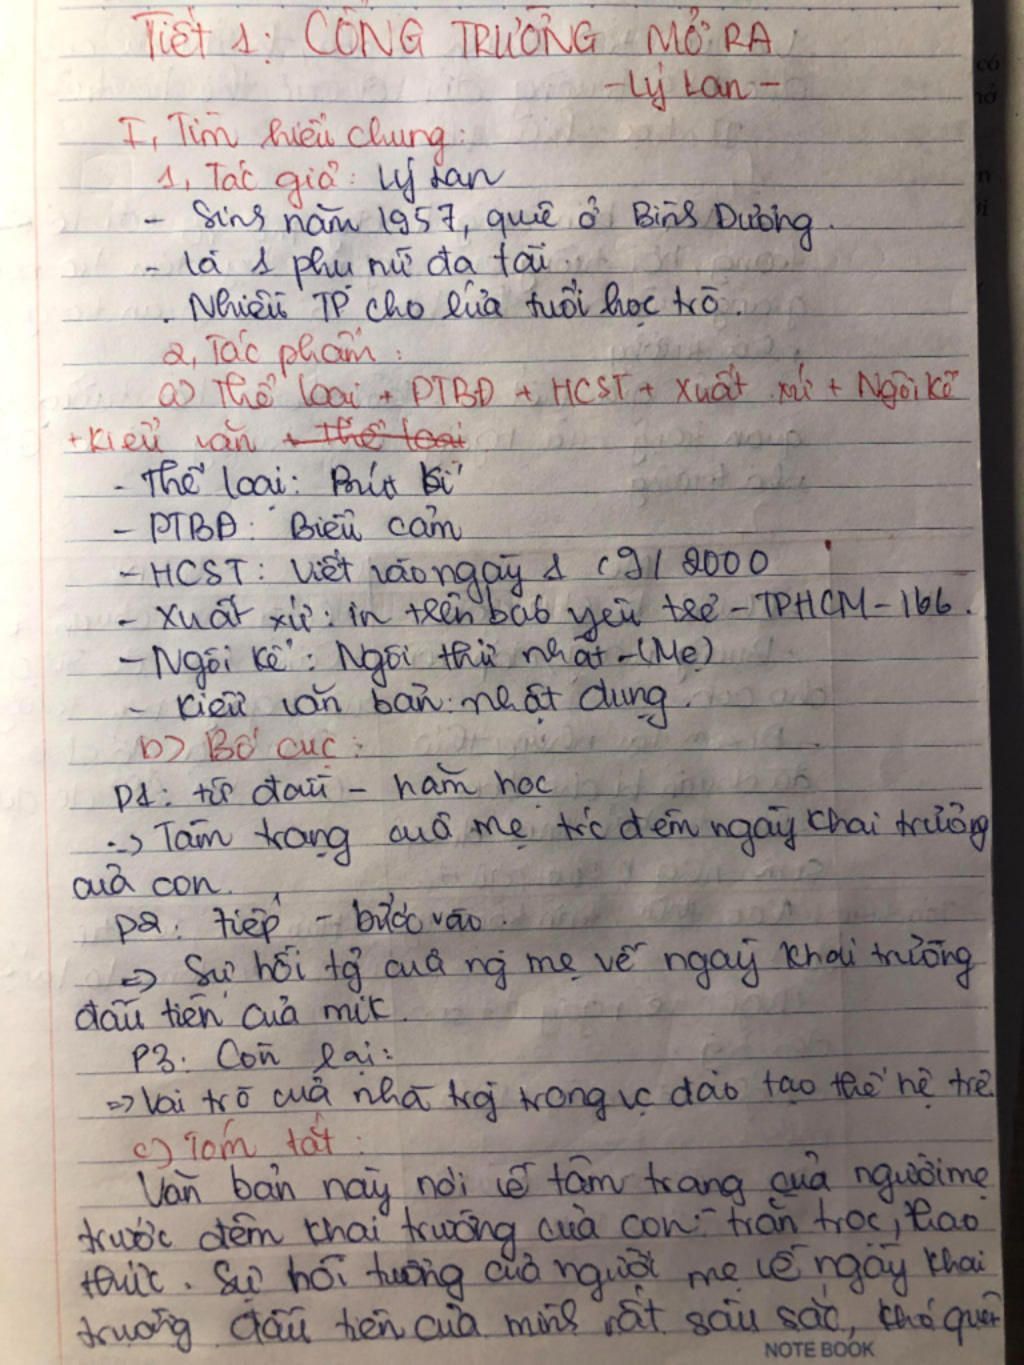 Tiết 1: CỔNG TRƯỜNG MỞ RA
- Lý Lan -
I, Tìm hiểu chung:
1, Tác giả: Lý Lan
- Sinh năm 1957, quê ở Bình Dương.
- Là 1 phụ nữ đa tài.
. Nhiều TP cho lứa tuổi học trò.
2, Tác phẩm:
a) Thể loại + PTBĐ + HCST + Xuất xứ + Ngôi kể
+ Kiểu văn + Thể loại
- Thể loại: Bút kí
- PTBĐ: Biểu cảm
- HCST: Viết vào ngày 1 / 9 / 2000
- Xuất xứ: in trên báo yêu trẻ - TPHCM - 166.
- Ngôi kể: Ngôi thứ nhất - (Mẹ)
- Kiểu văn bản: nhật dụng.
b) Bố cục:
P1: từ đầu - năm học
=> Tâm trạng của mẹ trc đêm ngày khai trường
của con.
P2: tiếp - bước vào.
=> Sự hồi tg của ng mẹ về ngày khai trường
đầu tiên của mik.
P3: Còn lại:
=> Vai trò của nhà trg trong vc đào tạo thế hệ trẻ.
c) Tóm tắt:
Văn bản này nói về tâm trạng của người mẹ
trước đêm khai trường của con: trằn trọc, thao
thức. Sự hồi tưởng của người mẹ về ngày khai
trường đầu tiên của mình rất sâu sắc, khó quên
NOTE BOOK